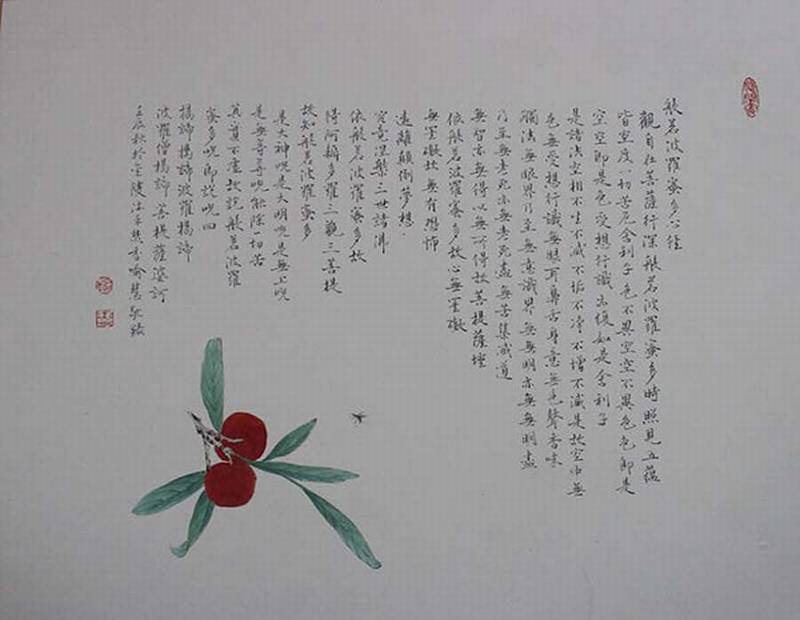 般若波羅蜜多心経
觀自在菩薩行深般若波羅蜜多時照見五蘊
皆空度一切苦厄舍利子色不異空空不異色色即是
空空即是色受想行識亦復如是舍利子
是諸法空相不生不滅不垢不净不增不減是故空中無
色無受想行識無眼耳鼻舌身意無色聲香味
觸法無眼界乃至無意識界無無明亦無無明盡
乃至無老死亦無老死盡無苦集滅道
無智亦無得以無所得故菩提薩埵
依般若波羅蜜多故心無罣礙
無罣礙故無有恐怖
遠離顛倒夢想
究竟涅槃三世諸佛
依般若波羅蜜多故
得阿耨多羅三藐三菩提
故知般若波羅蜜多
是大神呪是大明呪是無上呪
是無等等呪能除一切苦
真實不虛故說般若波羅
蜜多呪即說呪曰
揭諦揭諦波羅揭諦
波羅僧揭諦菩提薩婆訶
壬辰秋於金陵 喻慧